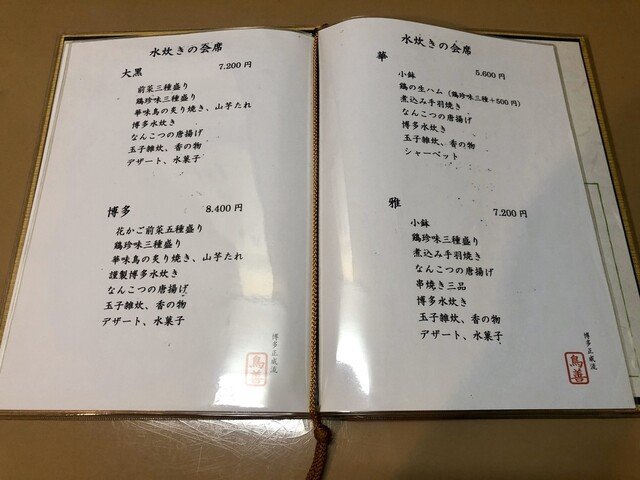 水炊きの会席
大黒 7,200円
前菜三種盛り
鶏珍味三種盛り
華味鳥の炙り焼き、山芋たれ
博多水炊き
なんこつの唐揚げ
玉子雑炊、香の物
デザート、水菓子
博多 8.400円
花かご前菜五種盛り
鶏珍味三種盛り
華味鳥の炙り焼き、山芋たれ
謹製博多水炊き
なんこつの唐揚げ
玉子雑炊、香の物
デザート、水菓子
博多正威流
鳥善
水炊きの会席
華 5.600円
小鉢
鶏の生ハム(鶏珍味三種+500円)
煮込み手羽焼き
なんこつの唐揚げ
博多水炊き
玉子雑炊、香の物
シャーベット
雅 7.200円
小鉢
鶏珍味三種盛り
煮込み手羽焼き
なんこつの唐揚げ
串焼き三品
博多水炊き
玉子雑炊、香の物
デザート、水菓子
博多正威流
鳥善